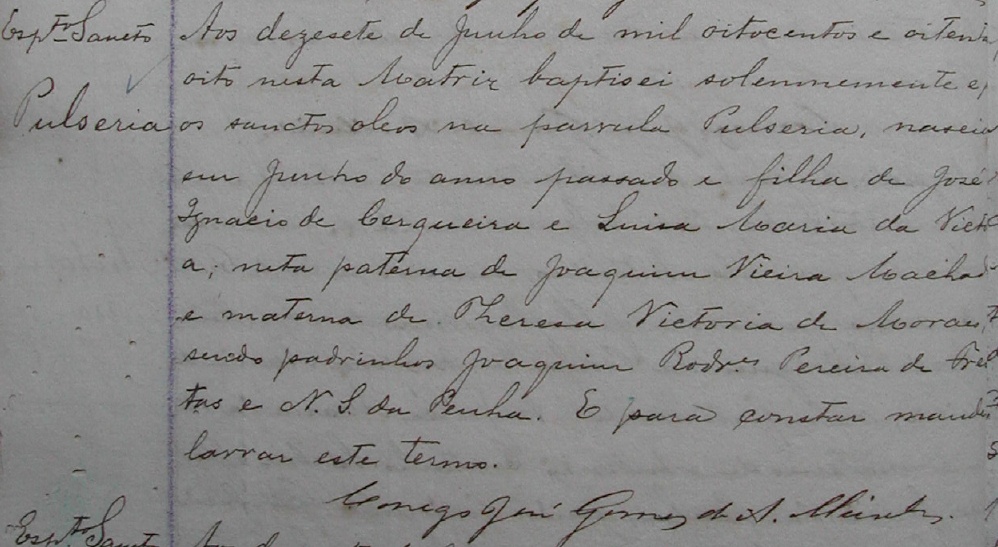 Espto Sancto
Pulseria
Aos dezesete de Junho de mil oitocentos e oitenta
oito nesta Matriz baptisei solemnemente e
os sanctos oleos na parvula Pulseria, nascid
em Junho do anno passado e filha de José
Ignacio de Cerqueira e Luisa Maria da Victo
a, neta paterna de Joaquim Vieira Machad
e materna de Theresa Victoria de Moraes,
sendo padrinhos Joaquim Rodres Pereira de Frei
tas e N. S. da Penha. E para constar mandei
lavrar este termo.
Conego José Gomes de A.
Espto Sancto